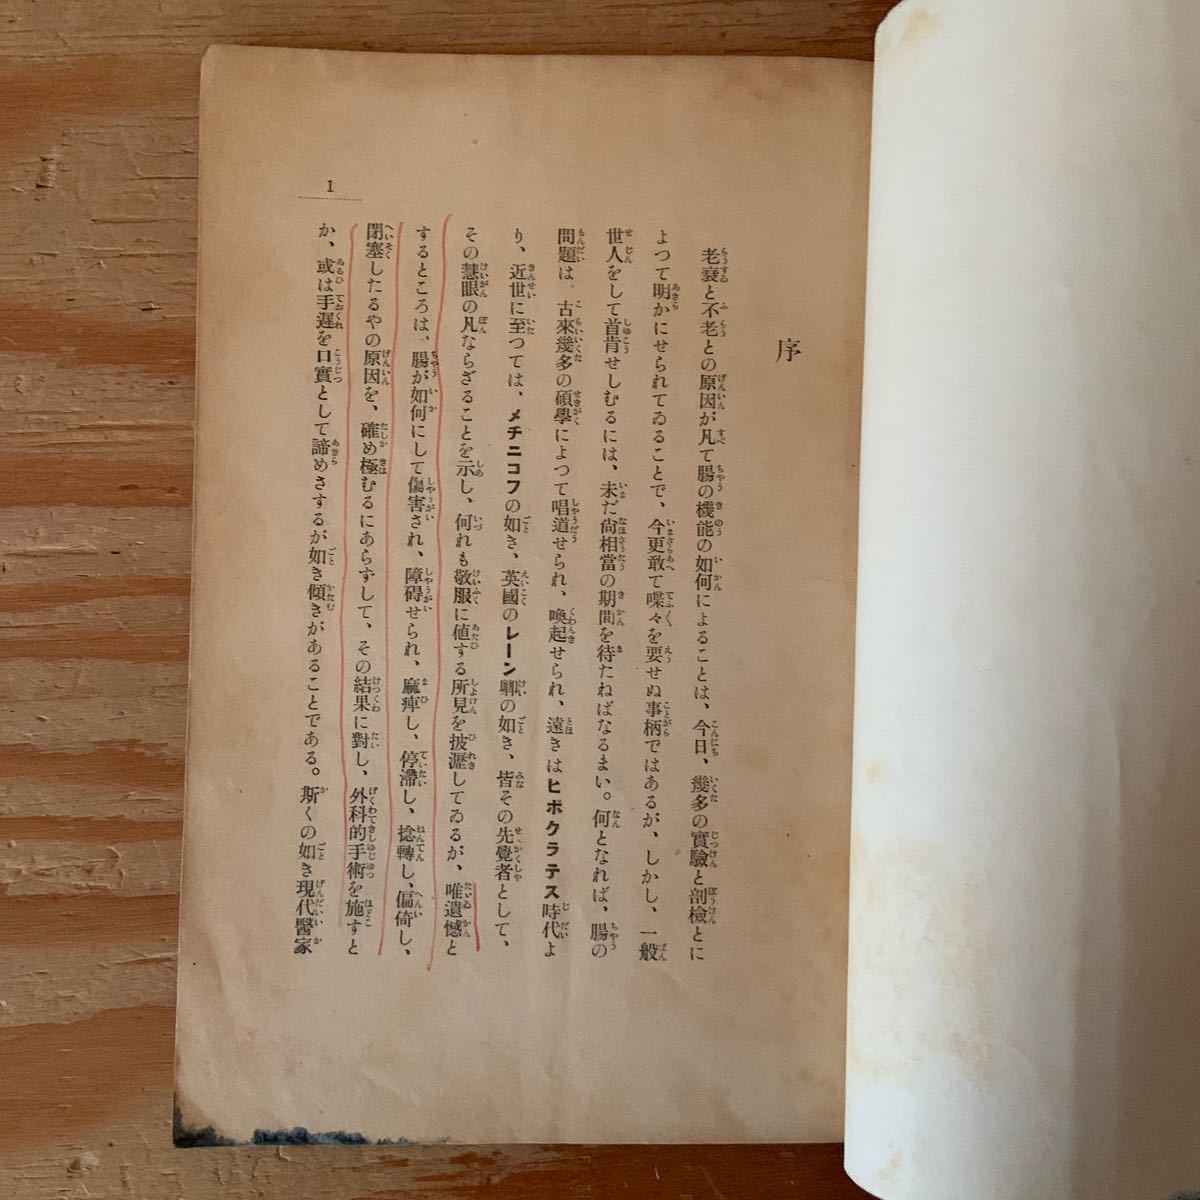 序
老衰と不老との原因が凡て腸の機能の如何によることは、今日、幾多の實驗と剖檢とに
よつて明かにせられてゐることで、今更敢て喋々を要せぬ事柄ではあるが、しかし、一般
世人をして首肯せしむるには、未だ尙相當の期間を待たねばなるまい。何となれば、腸の
問題は、古來幾多の碩學によつて唱道せられ、喚起せられ、遠きはヒポクラテス時代よ
り、近世に至つては、メチニコフの如き、英國のレーン卿の如き、皆その先覺者として、
その慧眼の凡ならざることを示し、何れも敬服に値する所見を披瀝してゐるが、唯遺憾と
するところは、腸が如何にして傷害され、障碍せられ、麻痺し、停滯し、捻轉し、偏倚し、
閉塞したるやの原因を、確め極むるにあらずして、その結果に對し、外科的手術を施すと
か、或は手遲を口實として諦めさするが如き傾きがあることである。斯くの如き現代醫家
1